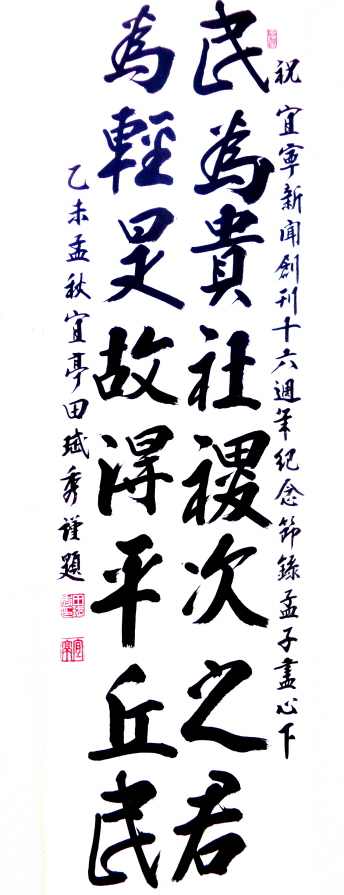 祝 宜寧新聞創刊十六週年紀念節錄孟子盡心下
民為貴社禝次之君
為輕是故得平丘民
乙未孟秋宜亭田秀謹題